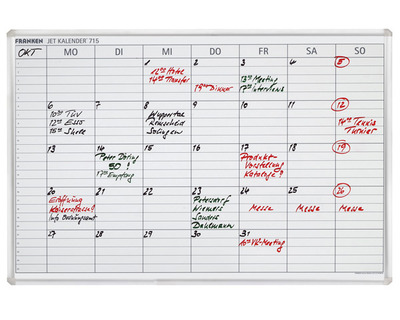 FRANKEN JET KALENDER 715
OKT MO DI MI DO FR SA SO
1 2 3 4 5
16⁰⁰ Hotel
14⁰⁰ Transfer
19⁰⁰ Dinner
13⁰⁰ Meeting
17⁰⁰ Interviews
6 7 8 9 10 11 12
10⁰⁰ TÜV
12⁰⁰ Esso
15⁰⁰ Shell
Wuppertal
Remscheid
Solingen
14⁰⁰ Tennis
Turnier
13 14 15 16 17 18 19
Peter Döring
50 !
17⁰⁰ Empfang
Produkt-
Vorstellung
Kataloge?
20 21 22 23 24 25 26
Eröffnung
Kaiserstrasse!
Info Ordnungsamt
Petersdorf
Niemers
Sanders
Dahlmann
Messe Messe Messe
27 28 29 30 31
10⁰⁰ VK-Meeting